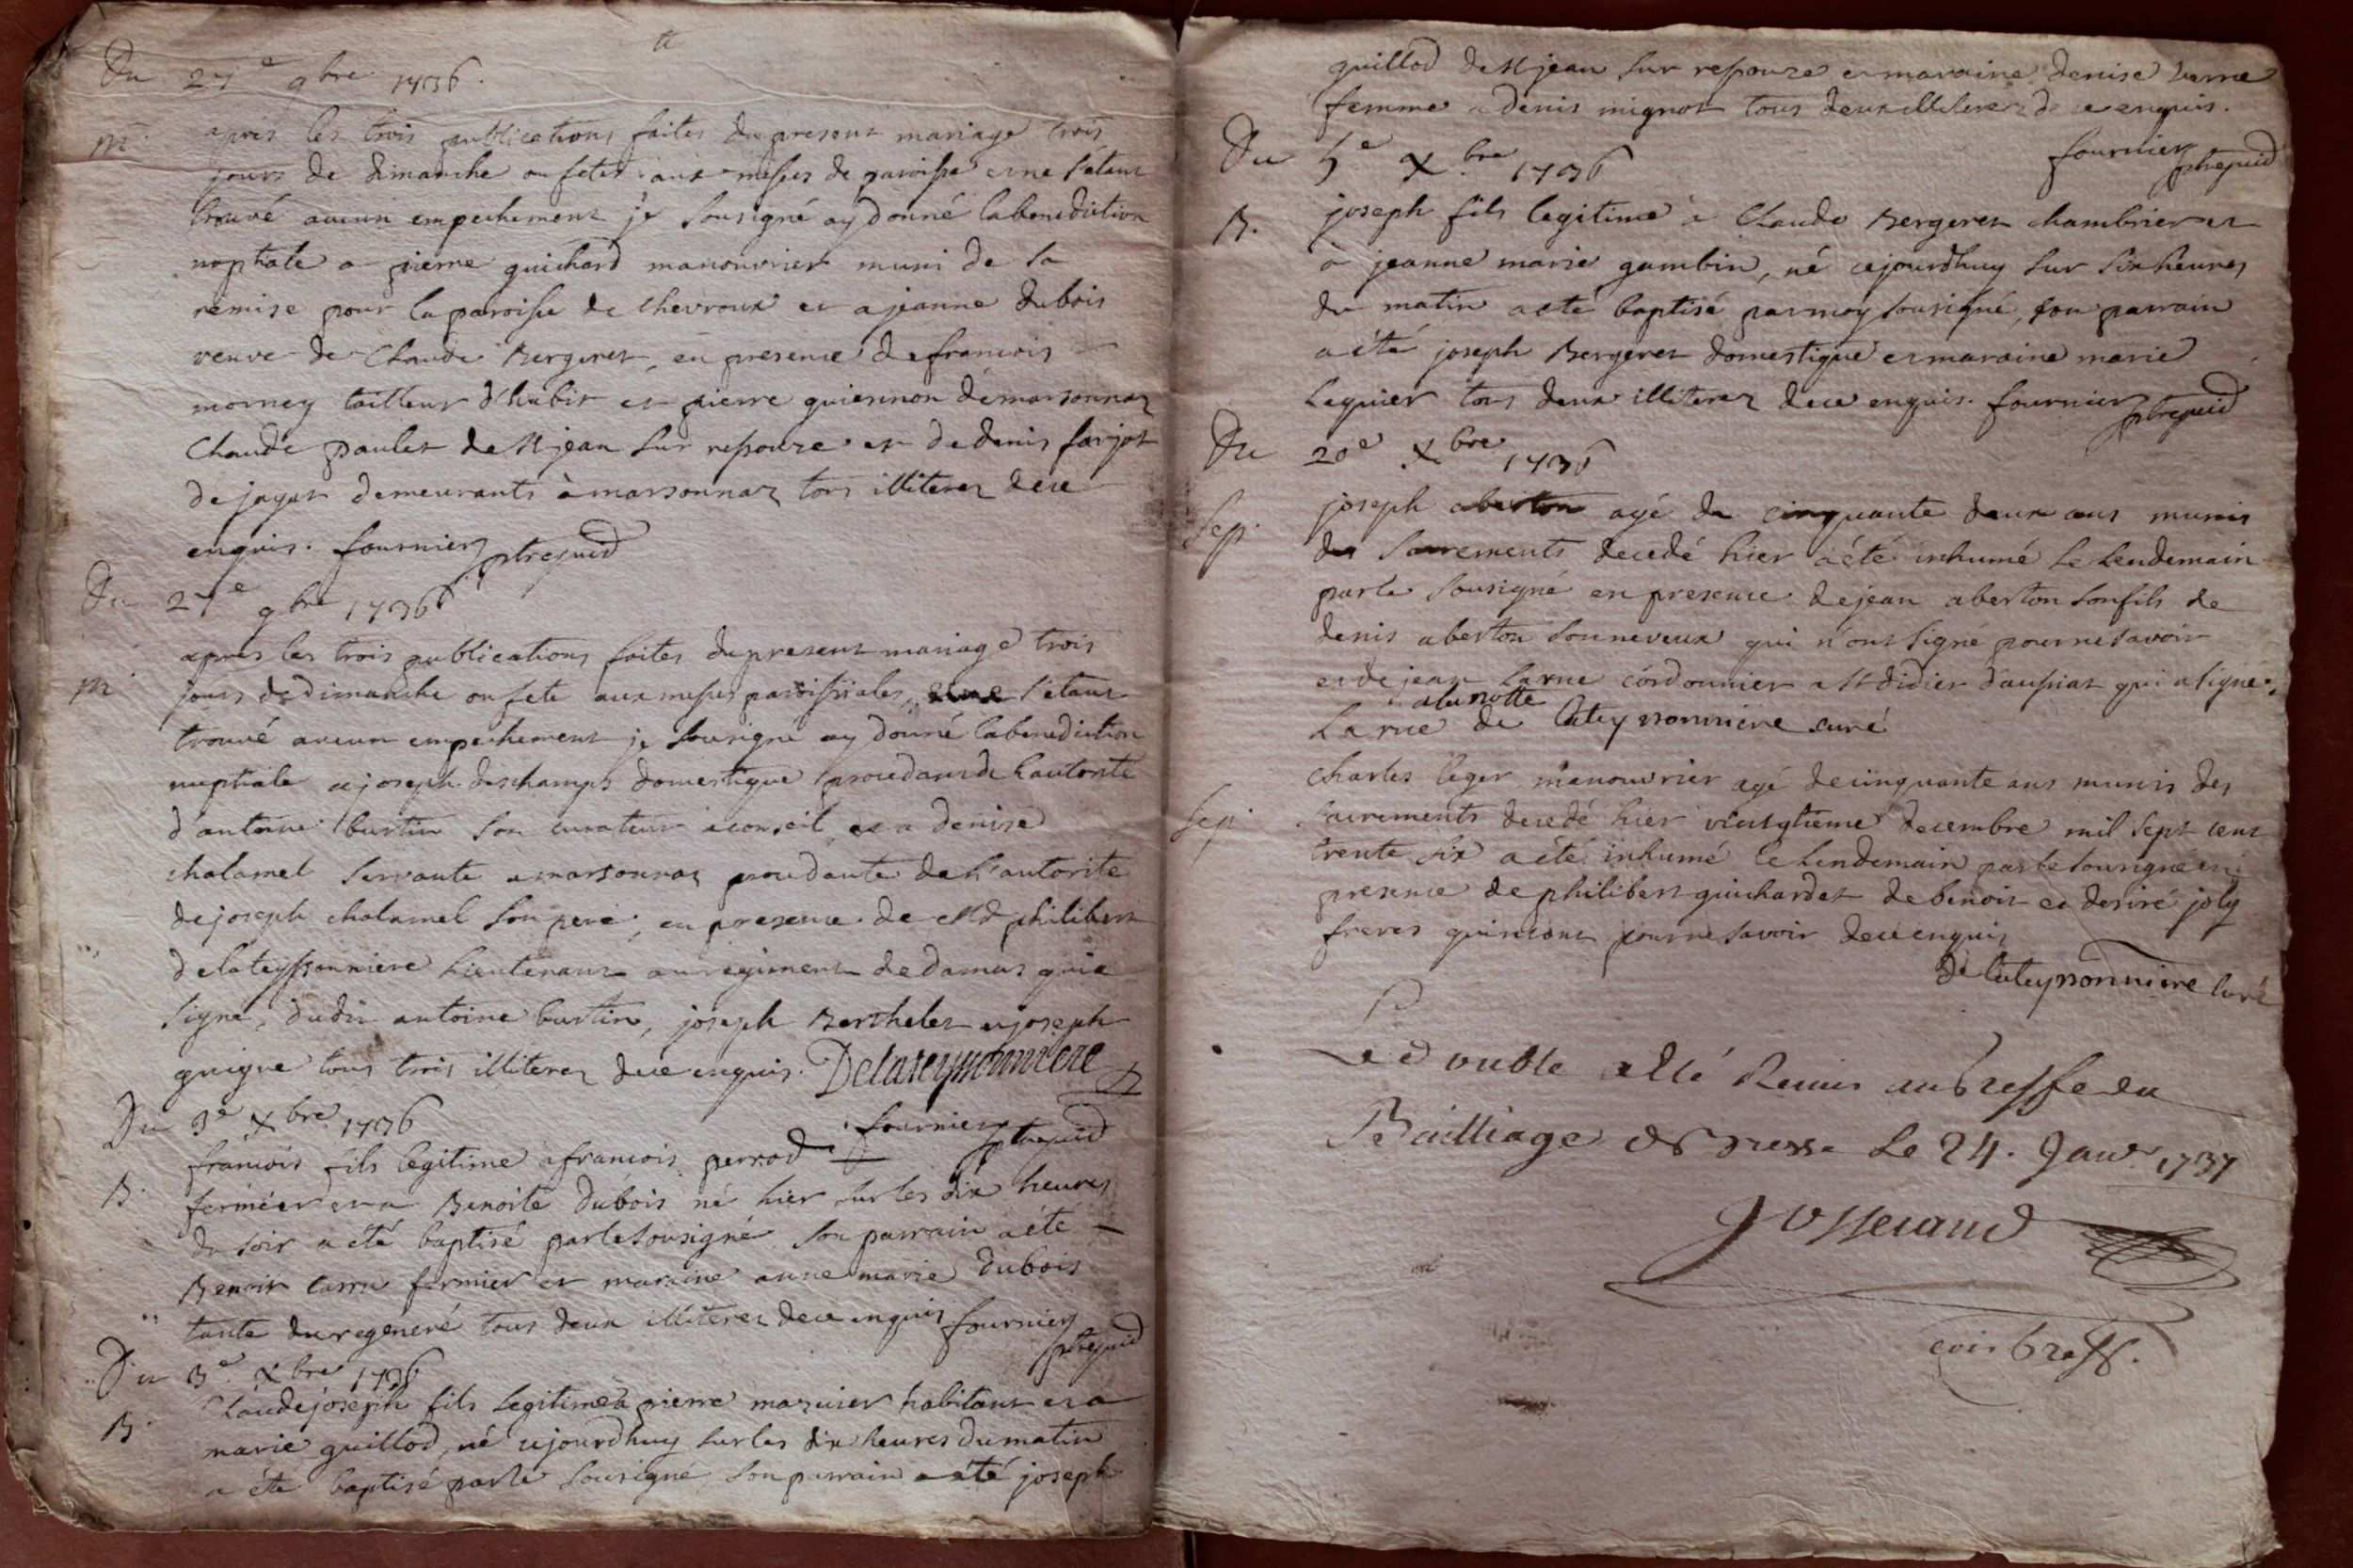 Du 27e 9bre 1736.
m. apres les trois publications faites du present mariage trois
jours de dimanche ou fetes aux messes de paroisse et ne s'étant
trouvé aucun empechement je sousigné ay donné la benediction
nuptiale a pierre guichard manouvrier muni de sa
remise pour la paroisse de chevroux et a jeanne dubois
veuve de Claude Bergeret, en presence de francois
morney tailleur d'habit et pierre guiennon de marsonnaz
Claude paulet de St jean sur repouze et de denis farjot
de jayat demeurants à marsonnaz tous illiterez de ce
enquis. fournier ptre quid
Du 27e 9bre 1736
m. apres les trois publications faites du present mariage trois
jours de dimanche ou fete aux messes paroissiales, s'étant
trouvé aucun empechement je sousigné ay donné la benediction
nuptiale a joseph deschamps domestique procedant de l'autorité
d'antoine burtin son curateur a conseil et a denise
chalamel servante a marsonnaz procedante de l'autorité
de joseph chalamel son pere, en presence de Md philibert
delateyssonniere lieutenant au regiment de damas qui a
signé, dudit antoine burtin, joseph Berthelet et joseph
guigue tous trois illiterez de ce enquis. Delateyssonniere
fournier ptre quid
Du 3e Xbre 1736
francois fils legitime a francois perrod
B. fermier et a Benoite dubois né hier sur les dix heures
du soir a été baptisé par le sousigné son parrain a été
Benoit fermier et maraine anne marie dubois
tante du regeneré tous deux illiterez de ce enquis fournier
ptre quid
Du 3e Xbre 1736
Claude joseph fils legitime à pierre mazuier habitant et a
B. marie guillod, né cejourdhuy sur les dix heures du matin
a été baptisé par le sousigné son parrain a été joseph
guillod de St jean sur repouze et maraine denise verne
femme a denis mignot tous deux illiterez de ce enquis.
fournier ptre quid
Du 5e Xbre 1736
B. joseph fils legitime a Claude Bergeret chambrier et
à jeanne marie gambin, né cejourdhuy sur six heures
du matin a été baptisé par moy sousigné, son parrain
a été joseph Bergeret domestique et maraine marie
Lequier tous deux illiterez de ce enquis. fournier
ptre quid
Du 20e Xbre 1736
Sep. joseph aberton agé de cinquante deux ans munis
des sacrements decedé hier a été inhumé le lendemain
par le sousigné en presence de jean aberton son fils de
denis aberton son neveux qui n'ont signé pour ne savoir
et de jean Larue cordonnier a St didier d'aussiat qui a signé
a la notte
Larue de lateyssonniere curé
Sep. charles leger manouvrier agé de cinquante ans munis des
sacrements decedé hier vintgtieme decembre mil sept cent
trente six a été inhumé le lendemain par le sousigné en
presence de philibert guichardet de benoit et desiré joly
freres qui n'ont pour ne savoir de ce enquis
de lateyssonniere curé
Le double a esté Remis au Greffe du
Bailliage de Bresse Le 24. Janv. 1737
Josserand